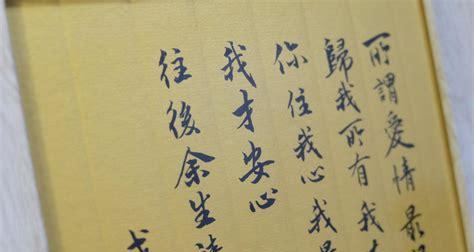 所謂愛情最
歸我所有我
你住我心我
我才安心
往後余生